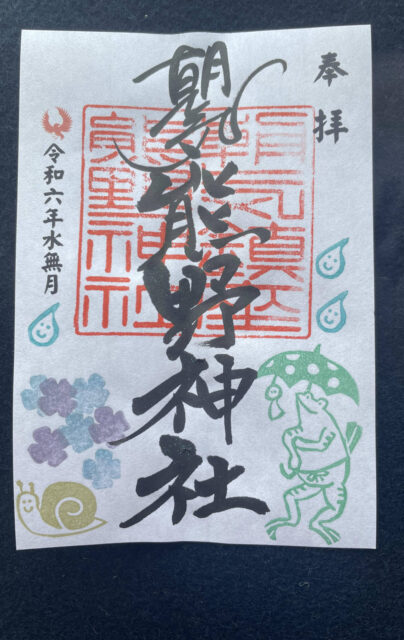 奉拝
朝気熊野神社
令和六年水無月